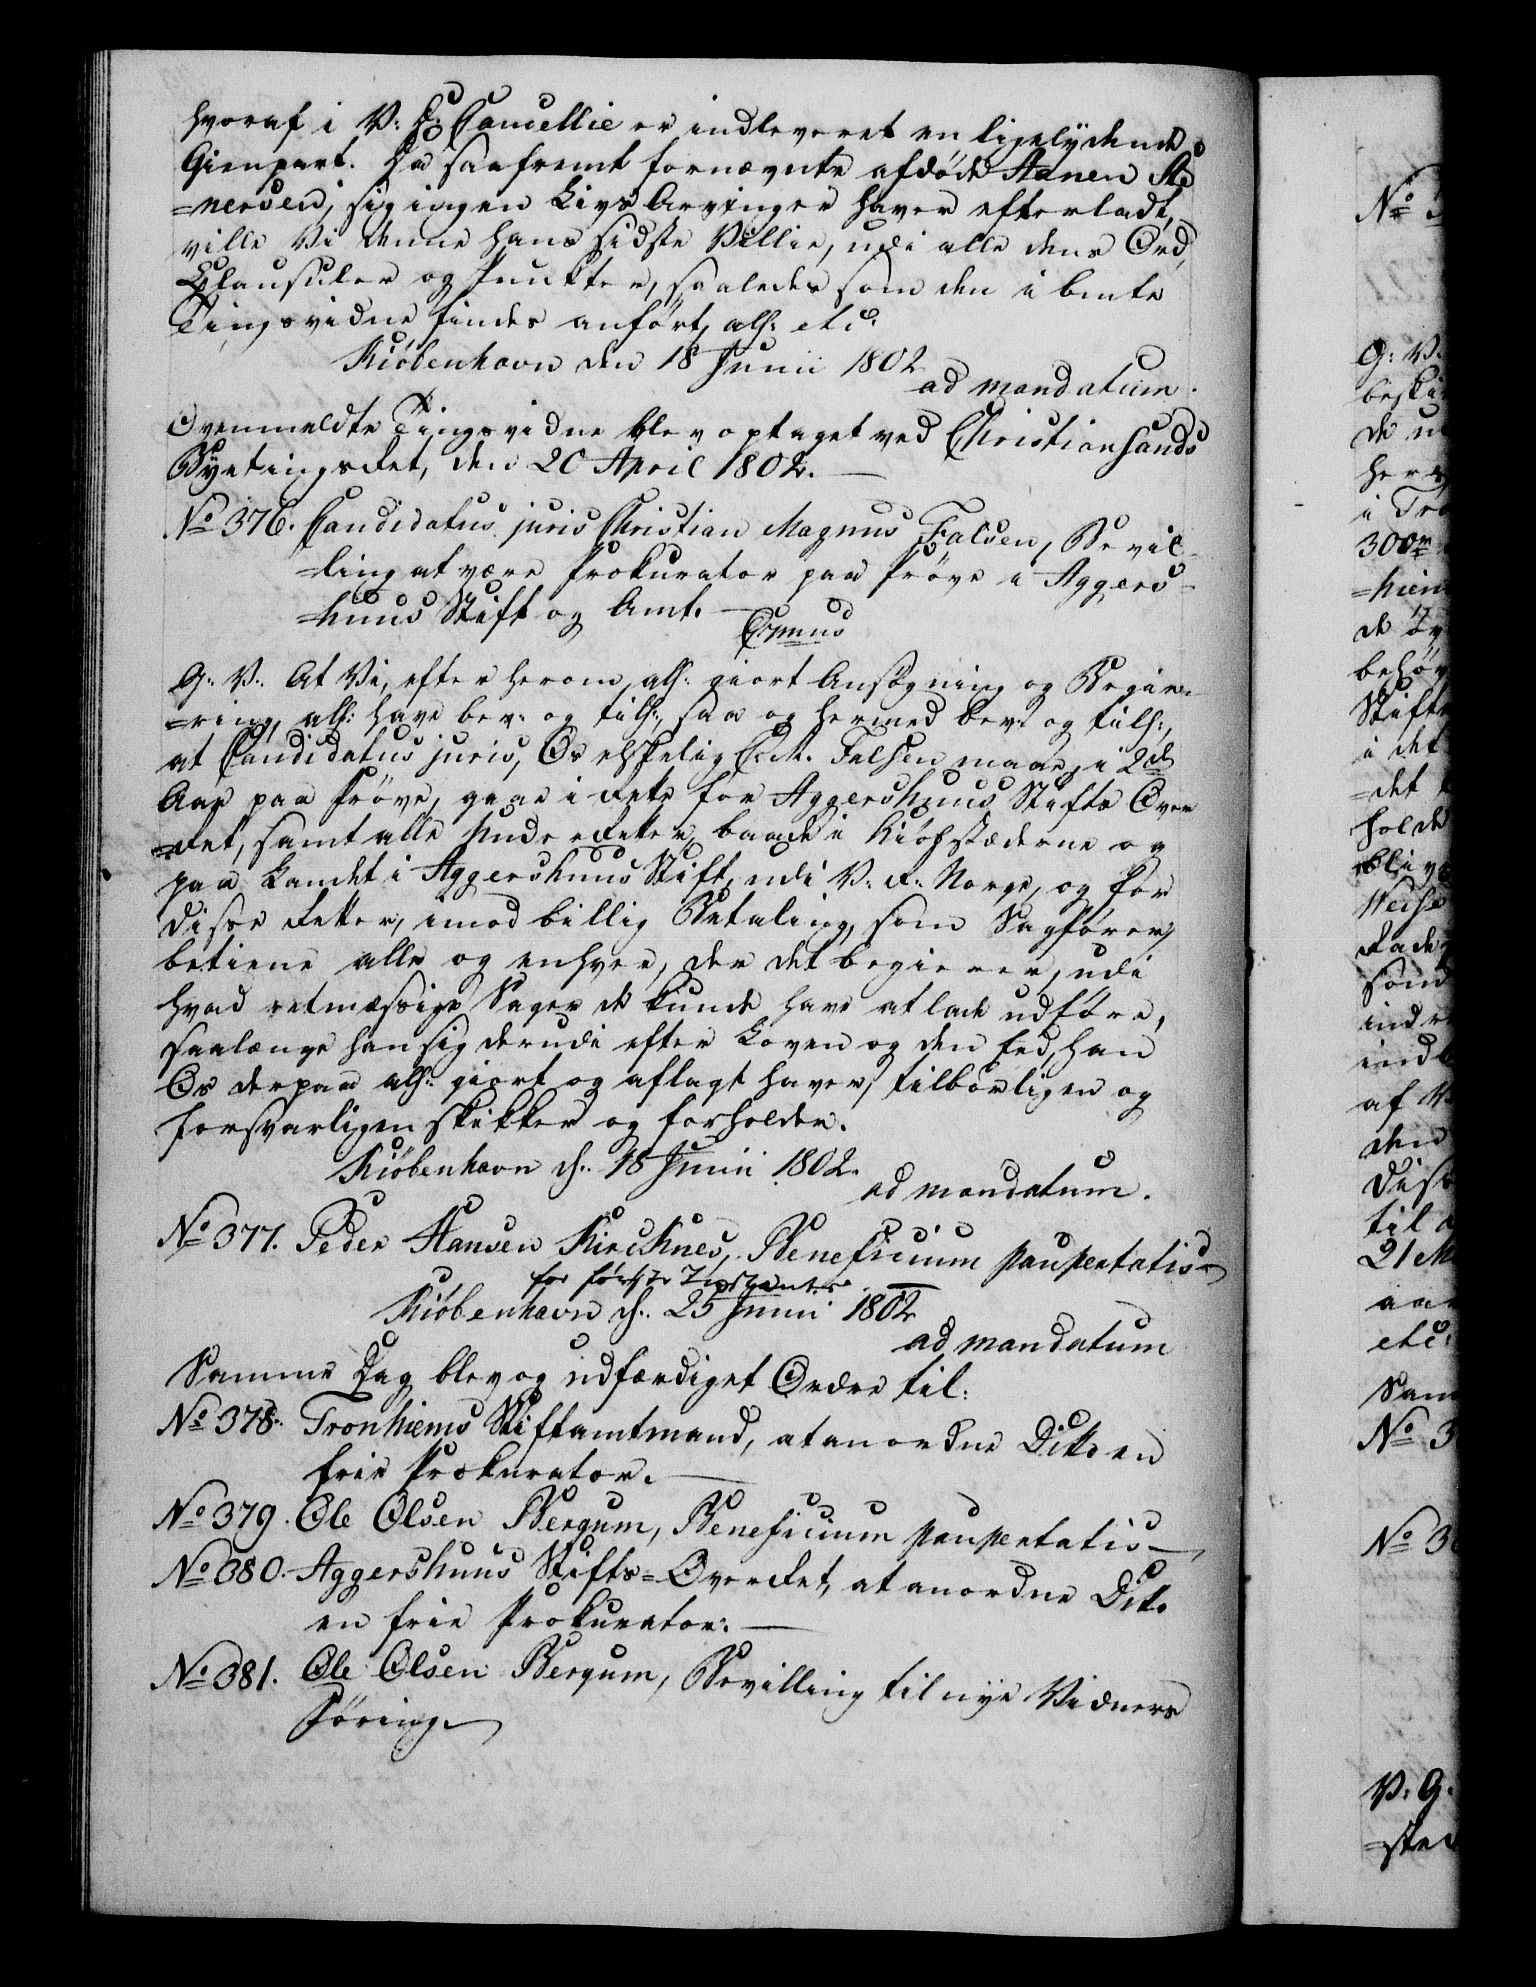 hvoraf i V: D: Cancellie er indleveret en ligelydende
Gienpart. Da saafremt fornævnte afdøde Aanen Ste
=nersen, sig ingen Livs Arvinger haver efterladt,
ville Vi denne hans sidste Villie, udi alle dens Ord,
Clausuler og Puncter, saaledes som den i bmte
Tingsvidne findes anført, alls: etc:
Kiøbenhavn den 18 Junii 1802
ad mandatum.
Ovenmeldte Tingsvidne blev optaget ved Christiansands
Byetingsret, den 20 April 1802.
No 376. Candidatus juris Christian Magnus Falsen, Bevil-
=ling at være Prokurator paa Prøve i Aggers-
=huus Stift og Amt.
Gratis
G: V: At Vi, efter herom, alls: giort Ansøgning og Begiæ-
=ring, alls: have bev: og tills:, saa og hermed bev: og tills:,
at Candidatus juris, Os elskelig C. M. Falsen maae, i 2de
Aar paa Prøve, gaae i Rette for Aggershuus Stifts Over
=Ret, samt alle Under Retter, baade i Kiøbstæderne og
paa Landet i Aggershuus Stift, udi V: R: Norge, og for
disse Retter, imod billig Betaling, som Sagfører,
betiene alle og enhver, der det begierer, udi
hvad retmæssige Sager de kunde have at lade udføre,
saalænge han sig derudi efter Loven og den Eed, han
Os derpaa alls: giort og aflagt haver, tilbørligen og
forsvarligen skikker og forholder.
Kiøbenhavn d: 18 Junii 1802.
ad mandatum.
No 377. Peder Hansen Kirchnes, Beneficium paupertatis
for første Instants
Kiøbenhavn d: 25 Junii 1802
ad mandatum
Samme Dag blev og udfærdiget Ordre til:
No 378. Tronhiems Stiftamtmand, at anordne Dito en
frie Prokurator.
No 379. Ole Olsen Bergum, Beneficium paupertatis
No 380. Aggershuus Stifts=Overret, at anordne Dito
en frie Prokurator.
No 381. Ole Olsen Bergum, Bevilling til nye Vidners
Føring